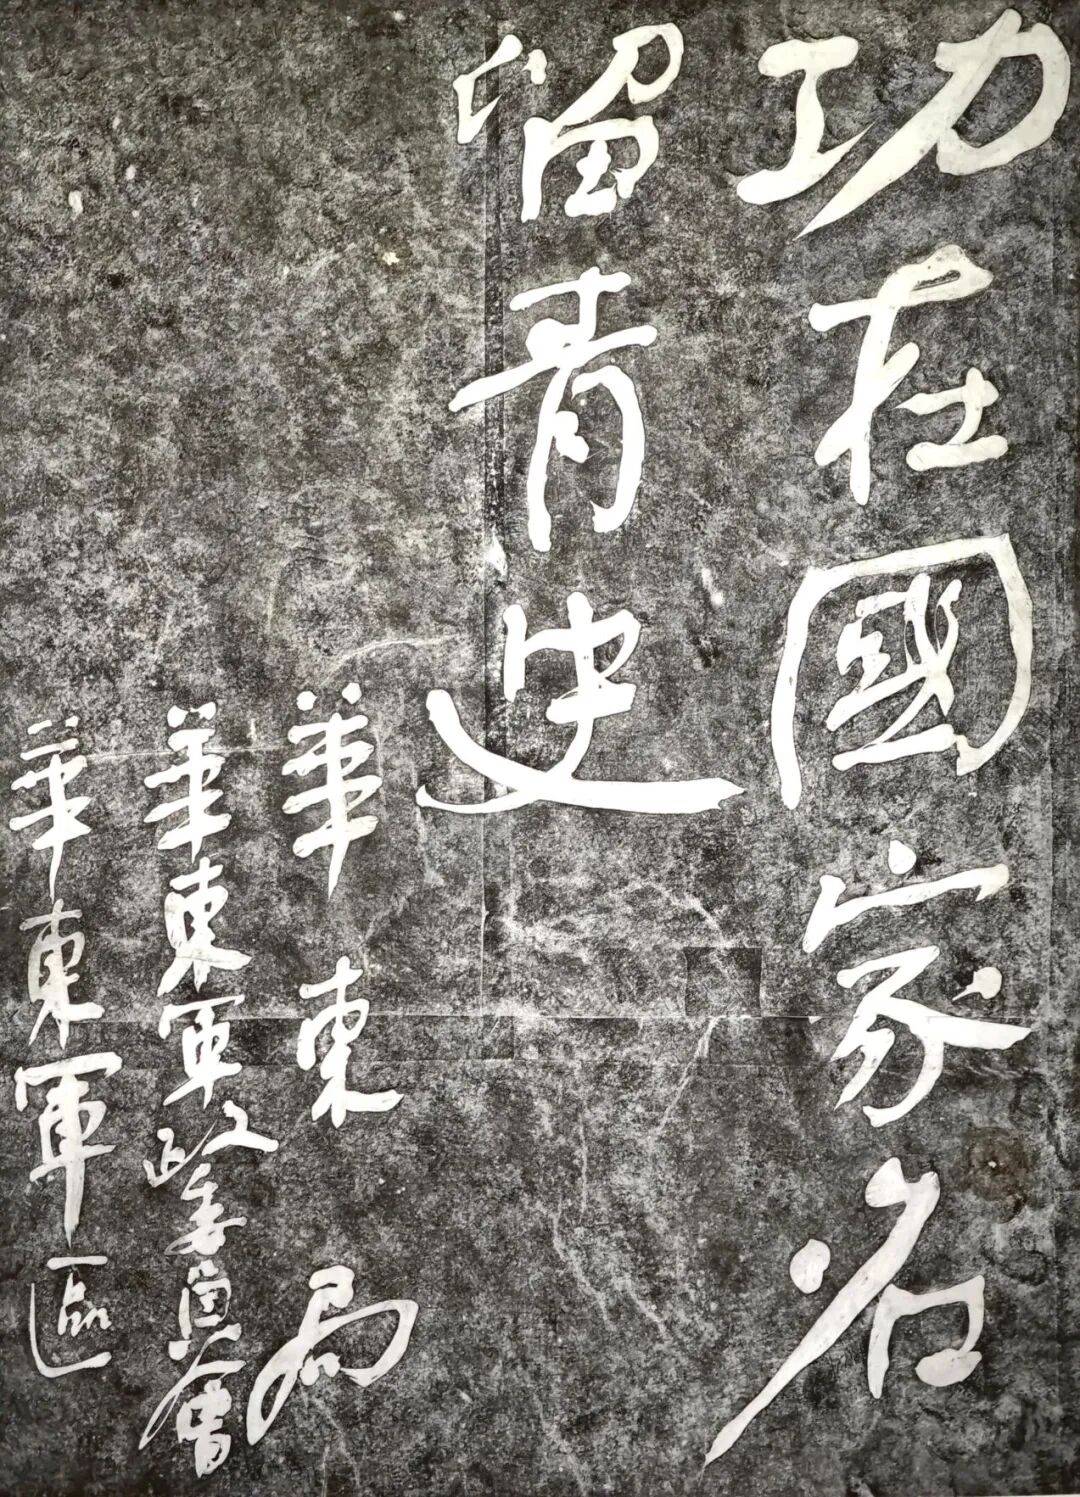 功在國家名
留青史
華東局
華東軍政委員會
華東軍區